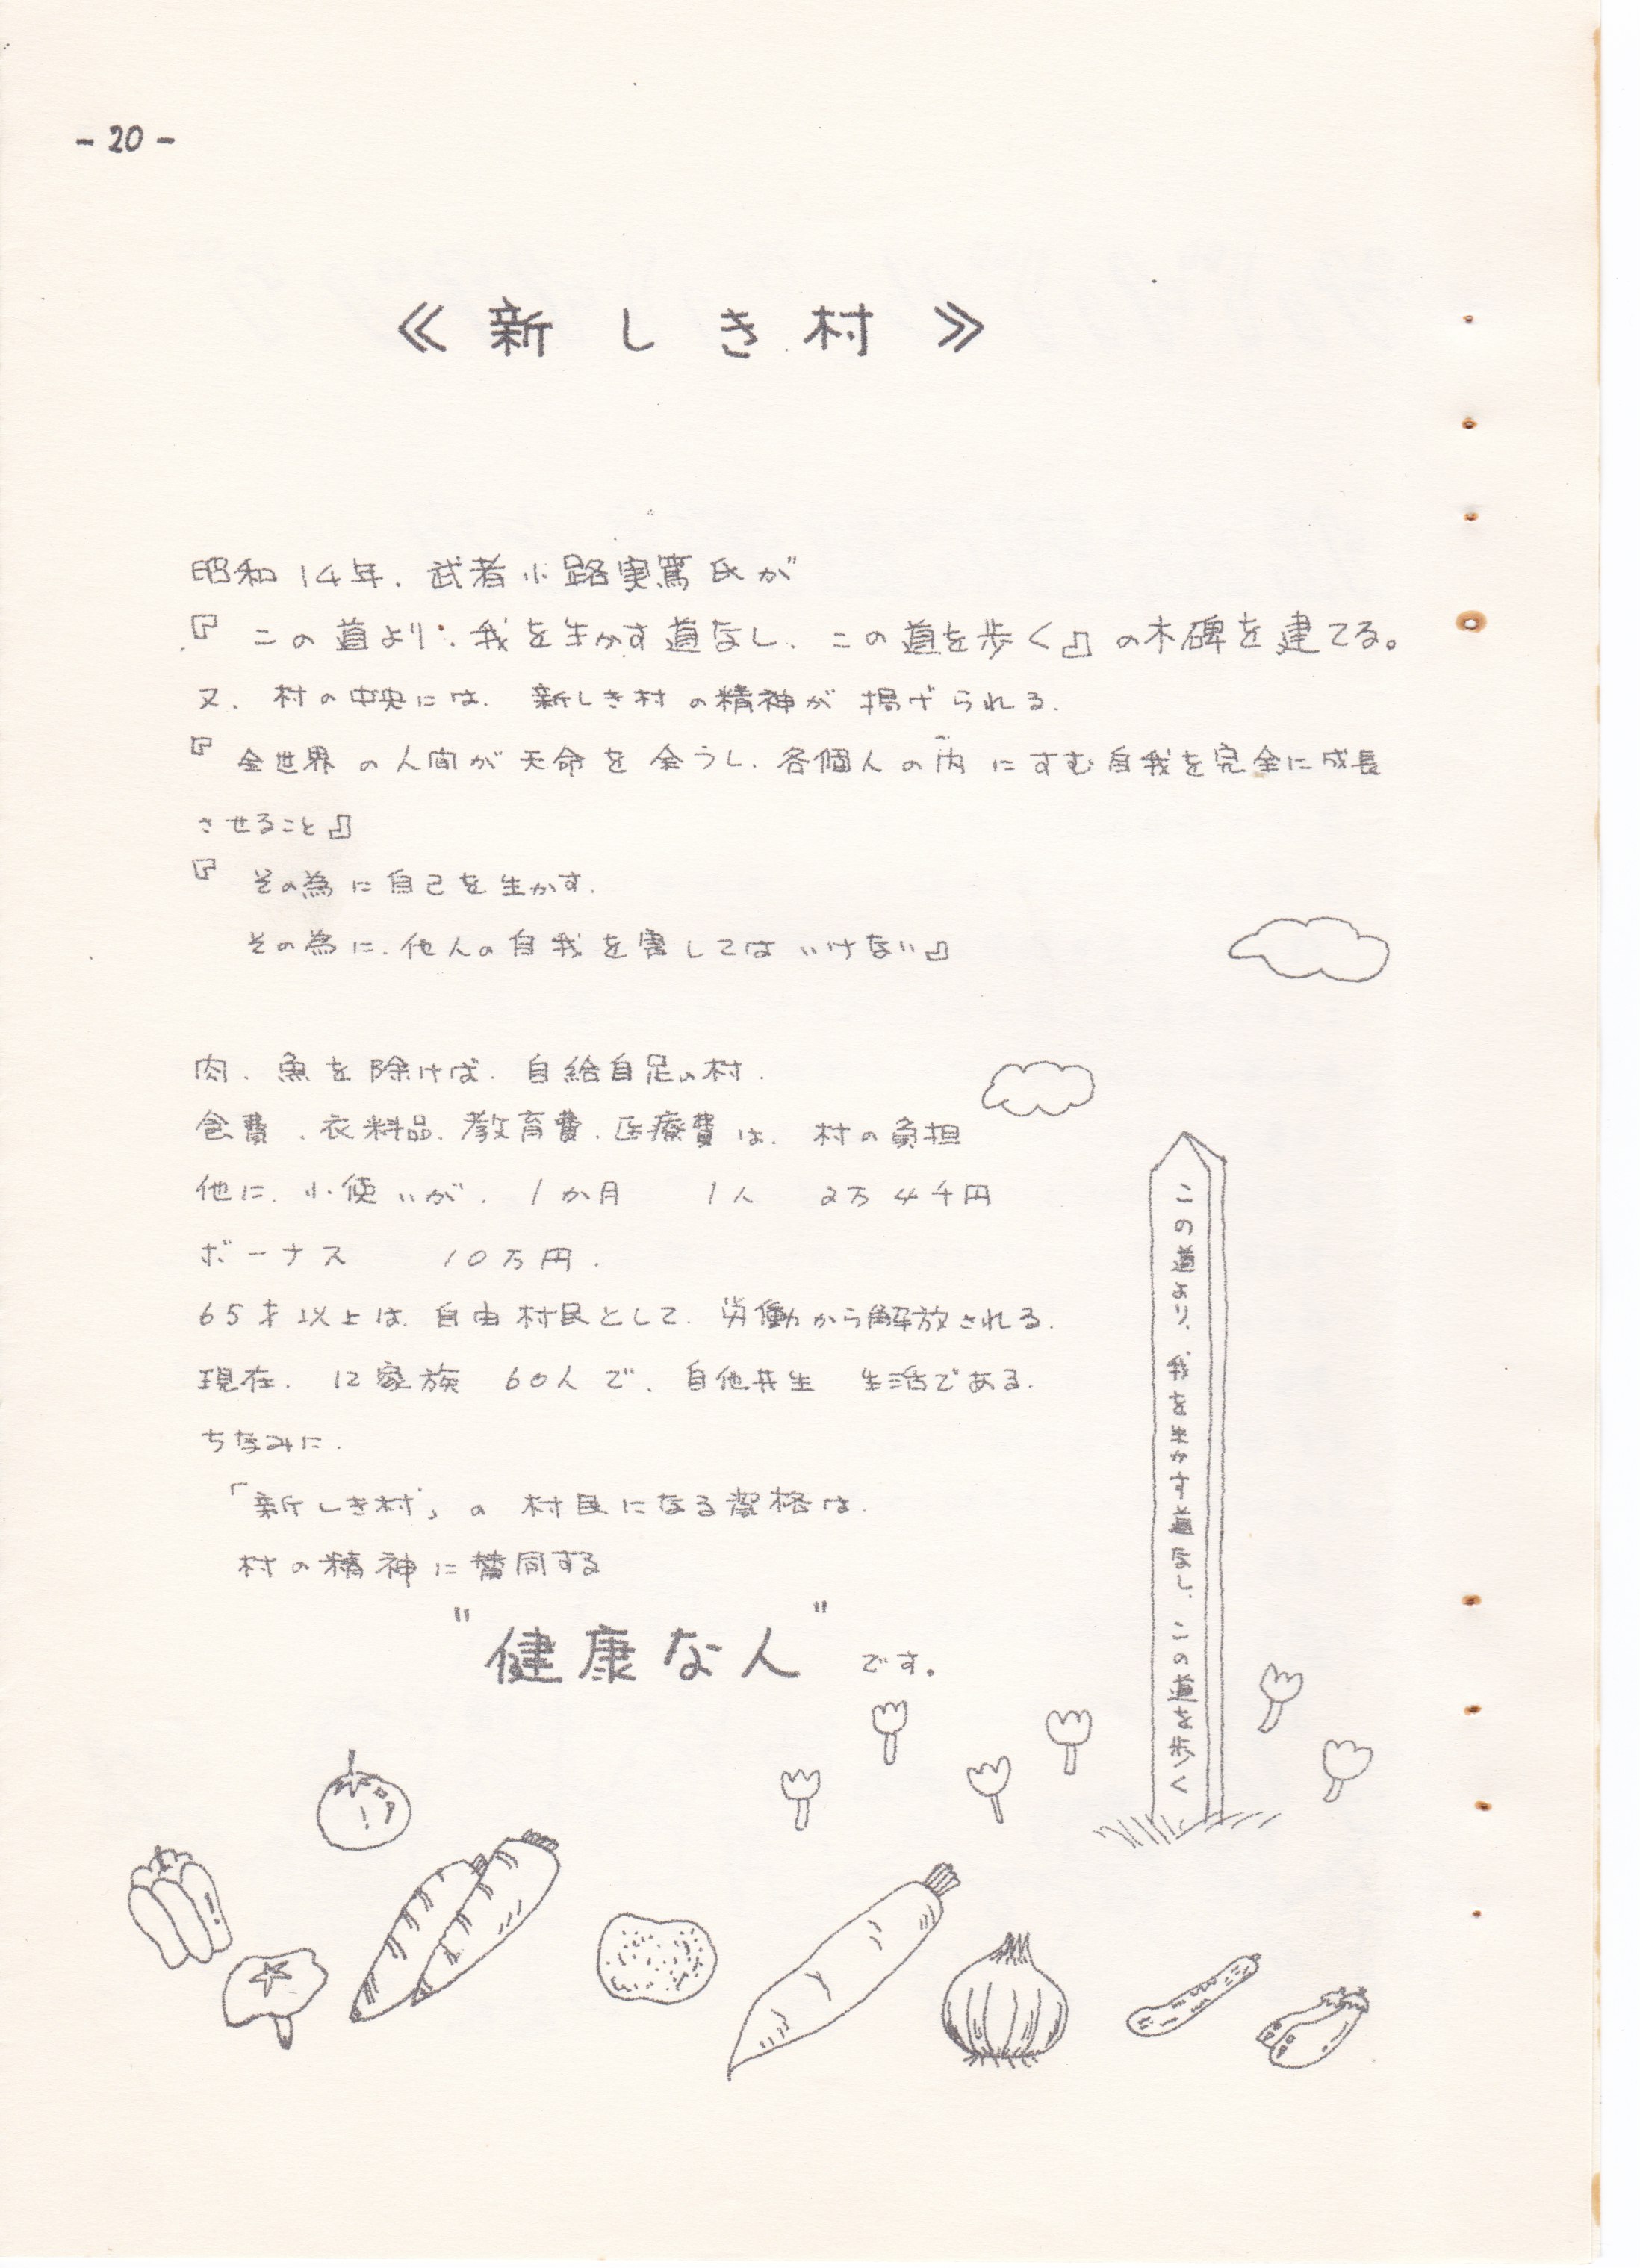 - 20 -
≪ 新しき村 ≫
昭和14年、武者小路実篤氏が
『この道より、我を生かす道なし、この道を歩く』の木碑を建てる。
又、村の中央には、新しき村の精神が掲げられる、
『全世界の人間が天命を全うし、各個人の内にすむ自我を完全に成長
させること』
『その為に自己を生かす、
その為に、他人の自我を害してはいけない』
肉、魚を除けば、自給自足の村、
食費、衣料品、教育費、医療費は、村の負担
他に、小使いが、1か月 1人 2万4千円
ボーナス 10万円、
65才以上は、自由村民として、労働から解放される、
現在、12家族 60人で、自他共生 生活である、
ちなみに、
「新しき村」の村民になる資格は、
村の精神に賛同する
"健康な人"です。
この道より、我を生かす道なし、この道を歩く